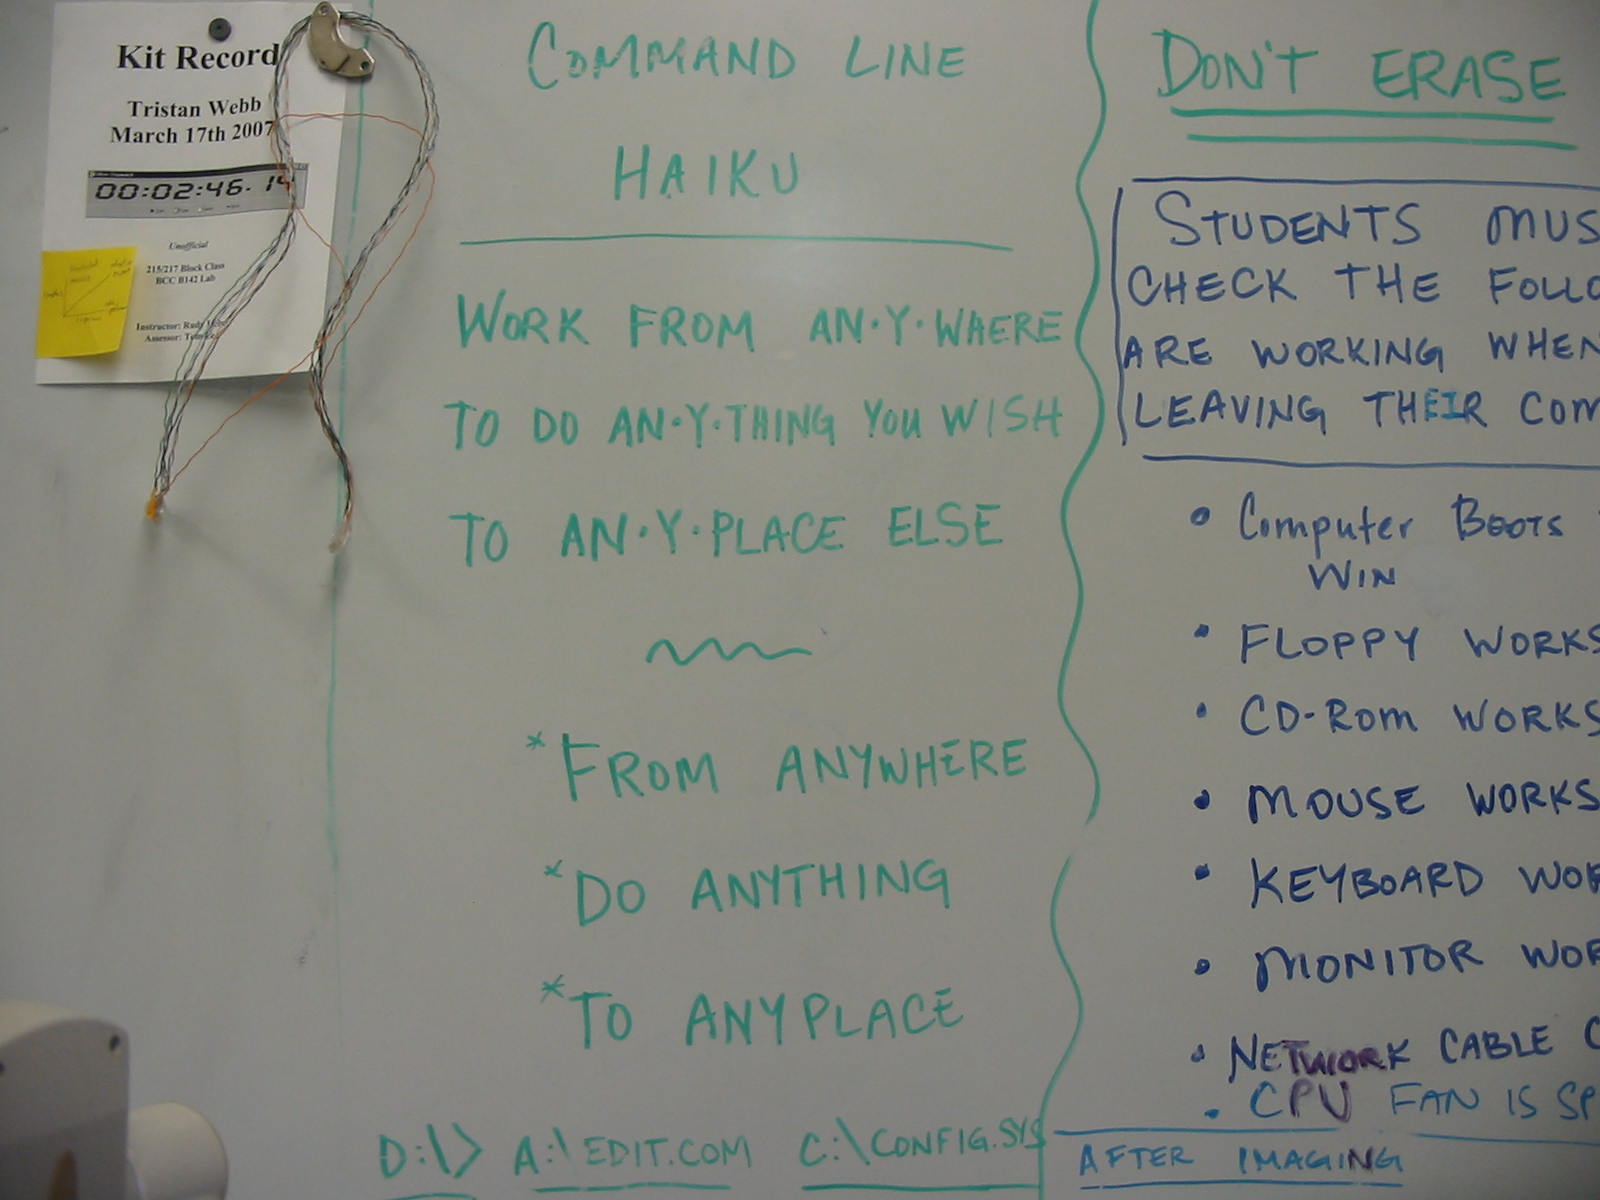 Kit Record
Tristan Webb
March 17th 2007
00:02:46.14
Unofficial
215/217 Block Class
BCC B142 Lab
Instructor: Rudy
Assessor:
COMMAND LINE
HAIKU
WORK FROM AN·Y·WHERE
TO DO AN·Y·THING YOU WISH
TO AN·Y·PLACE ELSE
*FROM ANYWHERE
*DO ANYTHING
*TO ANYPLACE
D:\> A:\EDIT.COM C:\CONFIG.SYS
DON'T ERASE
STUDENTS MUS
CHECK THE FOLLO
ARE WORKING WHEN
LEAVING THEIR COM
• Computer Boots
WIN
• FLOPPY WORKS
• CD-ROM WORKS
• MOUSE WORKS
• KEYBOARD WOR
• MONITOR WOR
• NETWORK CABLE C
• CPU FAN IS SP
AFTER IMAGING